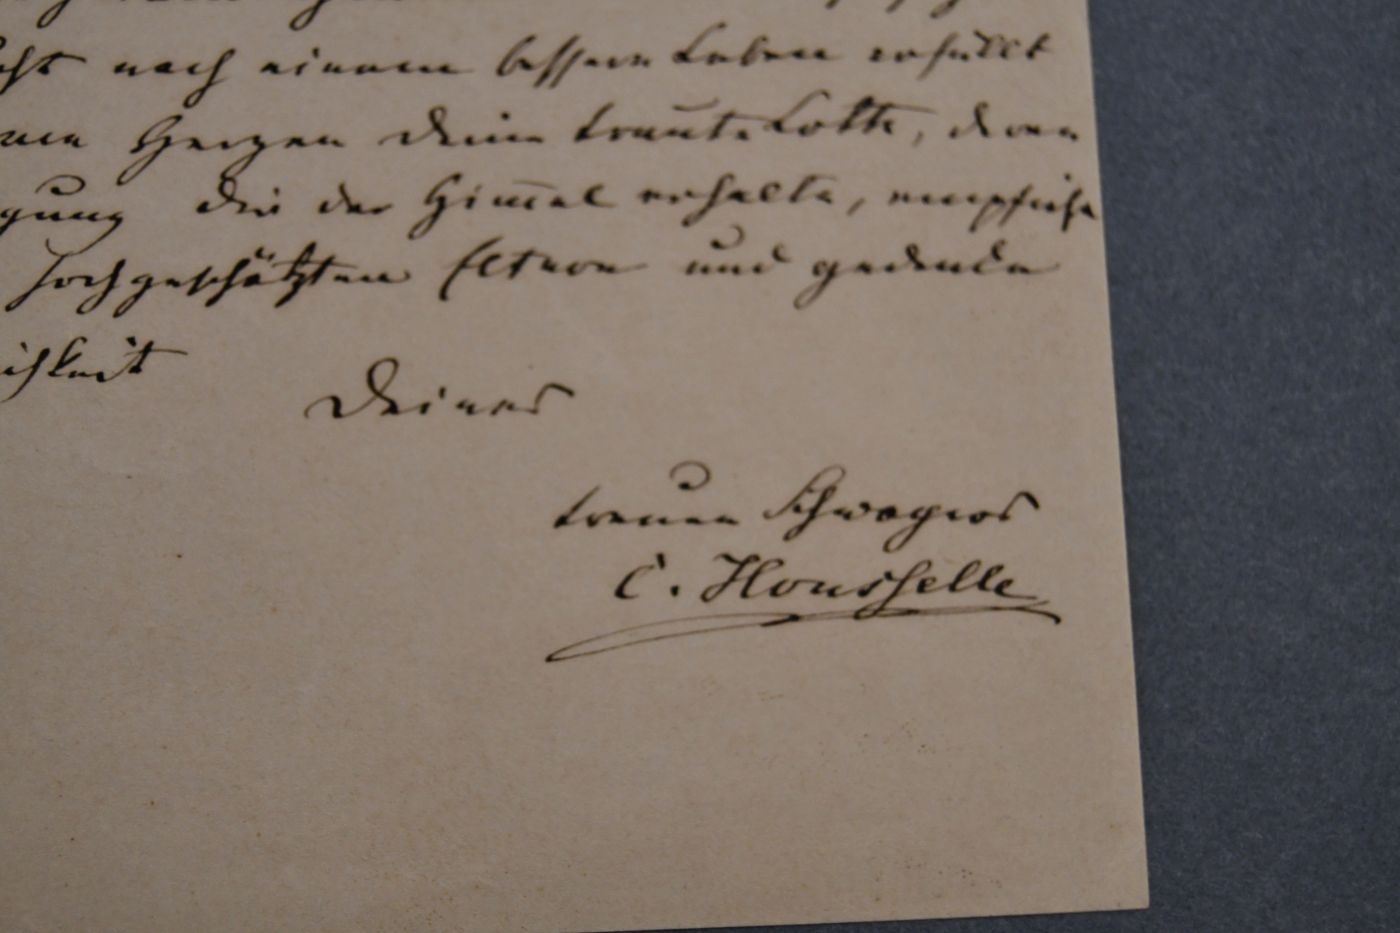 nach einem bessern Leben erfüllt
Herzen Deine traute Lotte, deren
gung Dir der Himmel erhalte, empfiehl
hochgeschätzten Eltern und gedenke
ichkeit
Deines
treuen Schwagers
C. Housselle